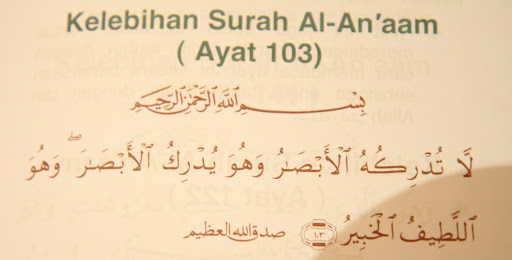 Kelebihan Surah Al-An'aam
( Ayat 103)
بِسْمِ اللَّهِ الرَّحْمَٰنِ الرَّحِيمِ
لَّا تُدْرِكُهُ الْأَبْصَـٰرُ وَهُوَ يُدْرِكُ الْأَبْصَـٰرَ ۖ وَهُوَ
اللَّطِيفُ الْخَبِيرُ ١٠٣ صدق الله العظيم